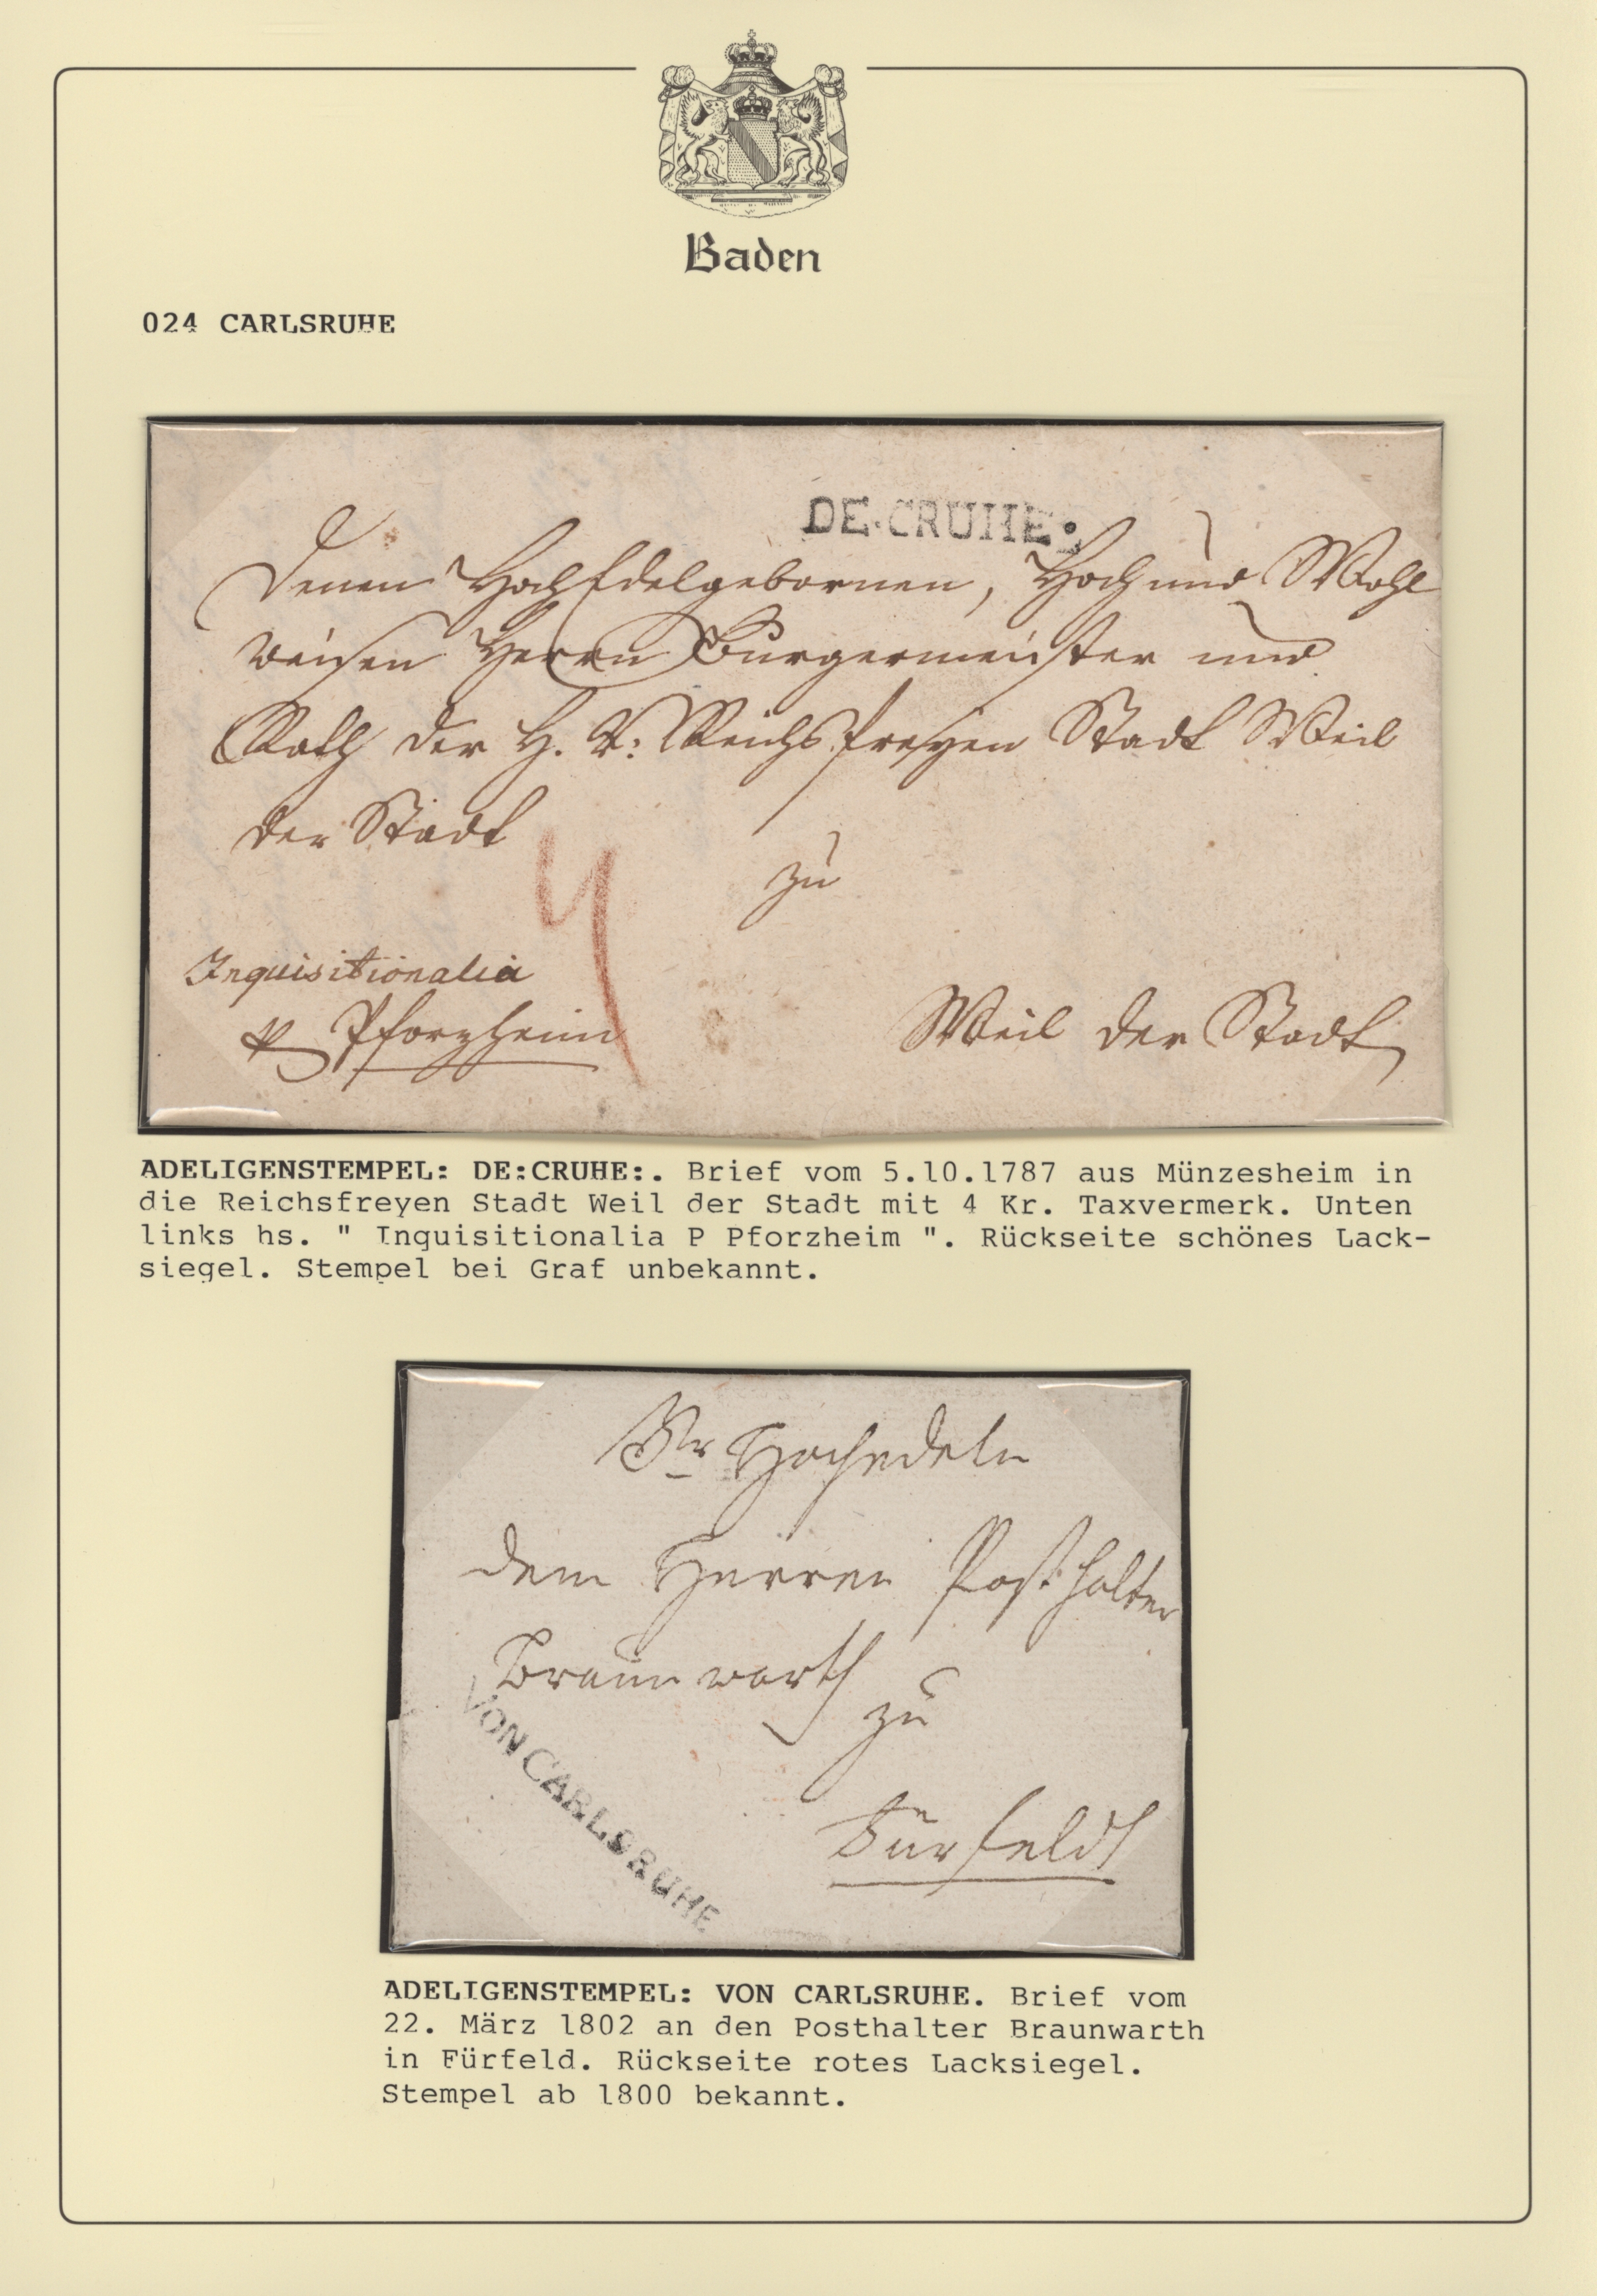 Baden
024 CARLSRUHE
DE.CRUHE:
Denen HochEdelgebornen, Hoch und Wohl
weisen Herrn Burgermeister und
Rath der H. R: Reichs freyen Stadt Weil
der Stadt
zu
4
Inquisitionalia
p Pforzheim
Weil der Stadt
ADELIGENSTEMPEL: DE:CRUHE:. Brief vom 5.10.1787 aus Münzesheim in
die Reichsfreyen Stadt Weil der Stadt mit 4 Kr. Taxvermerk. Unten
links hs. " Inquisitionalia P Pforzheim ". Rückseite schönes Lack-
siegel. Stempel bei Graf unbekannt.
Hochedeln
dem Herren Posthalter
Braunwarth
zu
Fürfeldt
VON CARLSRUHE
ADELIGENSTEMPEL: VON CARLSRUHE. Brief vom
22. März 1802 an den Posthalter Braunwarth
in Fürfeld. Rückseite rotes Lacksiegel.
Stempel ab 1800 bekannt.